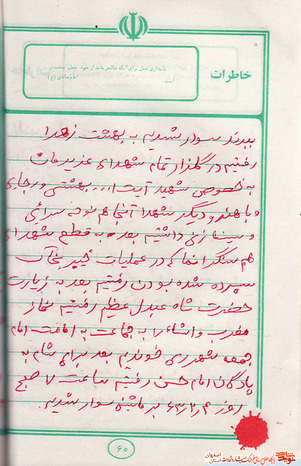 خاطرات
پایداری عمل برای آنکه خالص بماند از خود عمل سخت‌تر
امام صادق (ع)
ببرند سوار شدیم به بهشت زهرا
رفتیم در گلزار تمام شهدای عزیزمان
به خصوص شهید آیت ا... بهشتی و رجایی
و باهنر و دیگر شهدا آنجا هم نوحه سرائی
و سینه زنی داشتیم بعد به قطعه شهدای
هم سنگر انما که در عملیات خیبر بخاک
سپرده شده بودن رفتیم بعد به زیارت
حضرت شاه عبدل عظم رفتیم نماز
مغرب و اشاء را به جماعت به امامت امام
جمعه شهرری خوندیم بعد برای شام به
پادگان امام حسن رفتیم ساعت ۷ صبح
روز ۶۳/۲/۴ بر ماشین سوار شدیم
۶۰